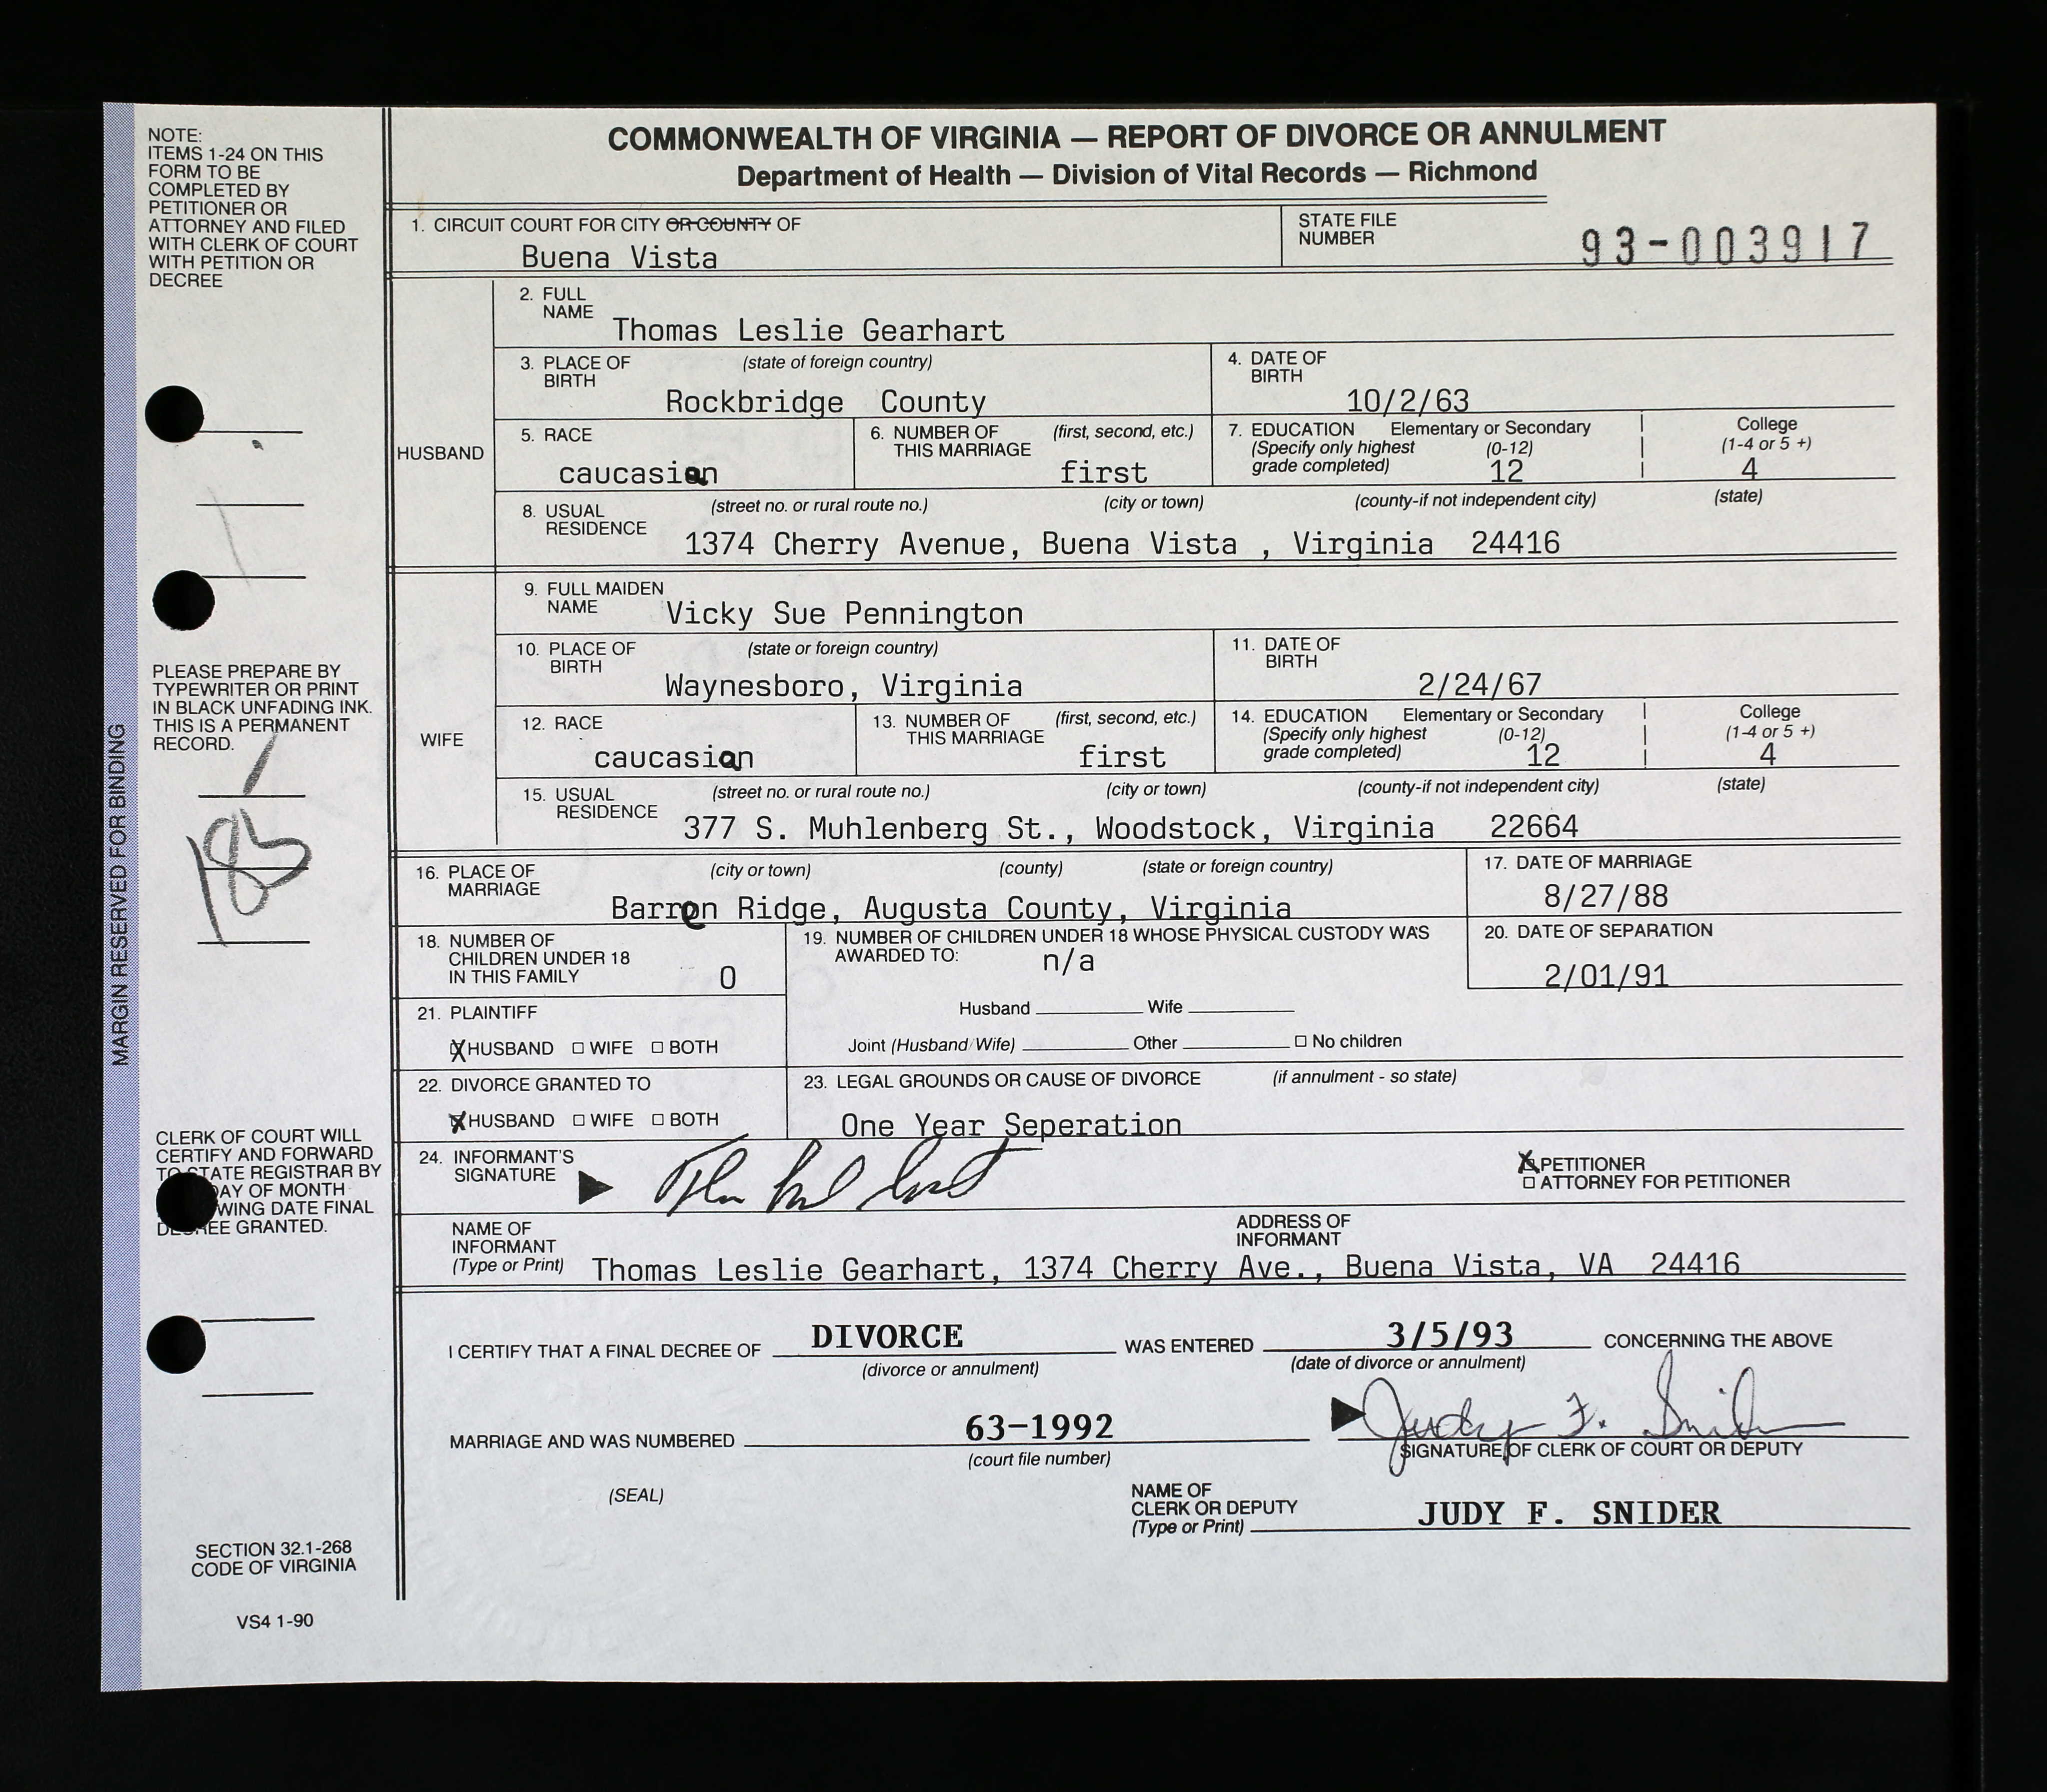 COMMONWEALTH OF VIRGINIA — REPORT OF DIVORCE OR ANNULMENT
Department of Health — Division of Vital Records — Richmond
NOTE:
ITEMS 1-24 ON THIS
FORM TO BE
COMPLETED BY
PETITIONER OR
ATTORNEY AND FILED
WITH CLERK OF COURT
WITH PETITION OR
DECREE
1. CIRCUIT COURT FOR CITY OR COUNTY OF
Buena Vista
STATE FILE
NUMBER
93-003917
HUSBAND
2. FULL
NAME
Thomas Leslie Gearhart
3. PLACE OF (state of foreign country)
BIRTH
Rockbridge County
4. DATE OF
BIRTH
10/2/63
5. RACE
caucasian
6. NUMBER OF (first, second, etc.)
THIS MARRIAGE
first
7. EDUCATION Elementary or Secondary College
(Specify only highest (0-12) (1-4 or 5 +)
grade completed) 12 4
8. USUAL (street no. or rural route no.) (city or town) (county-if not independent city) (state)
RESIDENCE
1374 Cherry Avenue, Buena Vista , Virginia 24416
WIFE
9. FULL MAIDEN
NAME
Vicky Sue Pennington
10. PLACE OF (state or foreign country)
BIRTH
Waynesboro, Virginia
11. DATE OF
BIRTH
2/24/67
12. RACE
caucasian
13. NUMBER OF (first, second, etc.)
THIS MARRIAGE
first
14. EDUCATION Elementary or Secondary College
(Specify only highest (0-12) (1-4 or 5 +)
grade completed) 12 4
15. USUAL (street no. or rural route no.) (city or town) (county-if not independent city) (state)
RESIDENCE
377 S. Muhlenberg St., Woodstock, Virginia 22664
PLEASE PREPARE BY
TYPEWRITER OR PRINT
IN BLACK UNFADING INK.
THIS IS A PERMANENT
RECORD.
MARGIN RESERVED FOR BINDING
16. PLACE OF (city or town) (county) (state or foreign country)
MARRIAGE
Barren Ridge, Augusta County, Virginia
17. DATE OF MARRIAGE
8/27/88
18. NUMBER OF
CHILDREN UNDER 18
IN THIS FAMILY 0
19. NUMBER OF CHILDREN UNDER 18 WHOSE PHYSICAL CUSTODY WAS
AWARDED TO: n/a
Husband Wife
Joint (Husband/Wife) Other No children
20. DATE OF SEPARATION
2/01/91
21. PLAINTIFF
X HUSBAND WIFE BOTH
22. DIVORCE GRANTED TO
X HUSBAND WIFE BOTH
23. LEGAL GROUNDS OR CAUSE OF DIVORCE (if annulment - so state)
One Year Seperation
24. INFORMANT'S
SIGNATURE
X PETITIONER
ATTORNEY FOR PETITIONER
CLERK OF COURT WILL
CERTIFY AND FORWARD
TO STATE REGISTRAR BY
DAY OF MONTH
WING DATE FINAL
DECREE GRANTED.
NAME OF
INFORMANT
(Type or Print)
ADDRESS OF
INFORMANT
Thomas Leslie Gearhart, 1374 Cherry Ave., Buena Vista, VA 24416
I CERTIFY THAT A FINAL DECREE OF DIVORCE WAS ENTERED 3/5/93 CONCERNING THE ABOVE
(divorce or annulment) (date of divorce or annulment)
MARRIAGE AND WAS NUMBERED 63-1992
(court file number)
Judy F. Snider
SIGNATURE OF CLERK OF COURT OR DEPUTY
(SEAL)
NAME OF
CLERK OR DEPUTY
(Type or Print)
JUDY F. SNIDER
SECTION 32.1-268
CODE OF VIRGINIA
VS4 1-90